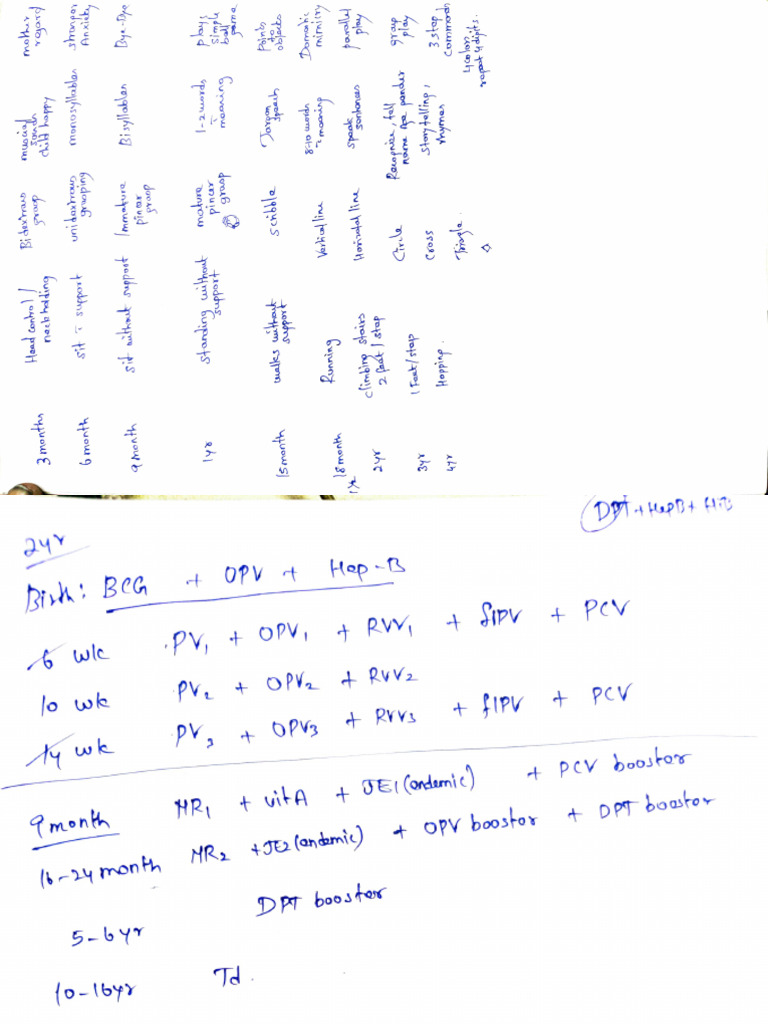 3 months Head control / neck holding Bidextrous grasp musical sounds child happy mother regard
6 month sit c̄ support unidextrous grasping monosyllables stranger Anxiety
9 month sit without support Immature pincer grasp Bisyllables Bye-Bye
1yr standing without support mature pincer grasp 1-2 words c̄ meaning plays simple ball game
15 month walks without support scribble Jargon speech points to objects
18 month 1½ Running Vertical line 8-10 words c̄ meaning Domestic mimicry
2yr climbing stairs 2 feet / step Horizontal line speak sentences parallel play
3yr 1 Feet / step Circle Recognise, tell name age gender group play
4yr Hopping. cross storytelling, rhymes 3 step commands
Triangle. 4 colors. repeat 4 digits.
◇
DPT + HepB + HiB
2yr
Birth: BCG + OPV + Hep-B
6 wk PV1 + OPV1 + RVV1 + fIPV + PCV
10 wk PV2 + OPV2 + RVV2
14 wk PV3 + OPV3 + RVV3 + fIPV + PCV
9 month MR1 + vit A + JE1 (endemic) + PCV booster
16-24 month MR2 + JE2 (endemic) + OPV booster + DPT booster
5-6yr DPT booster
10-16yr Td.